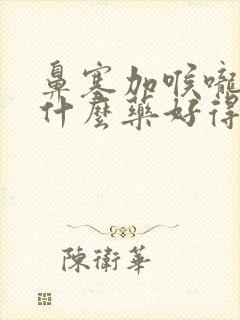 鼻塞加喉嚨
什麼藥好得
陳衛華